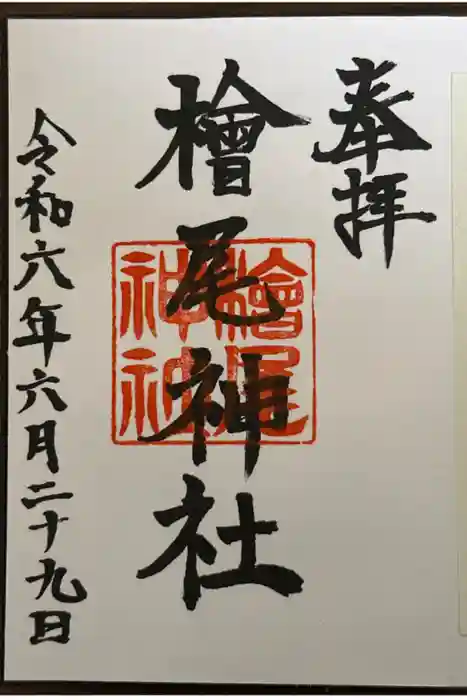 奉拝
檜尾神社
令和六年六月二十九日
檜尾
神社